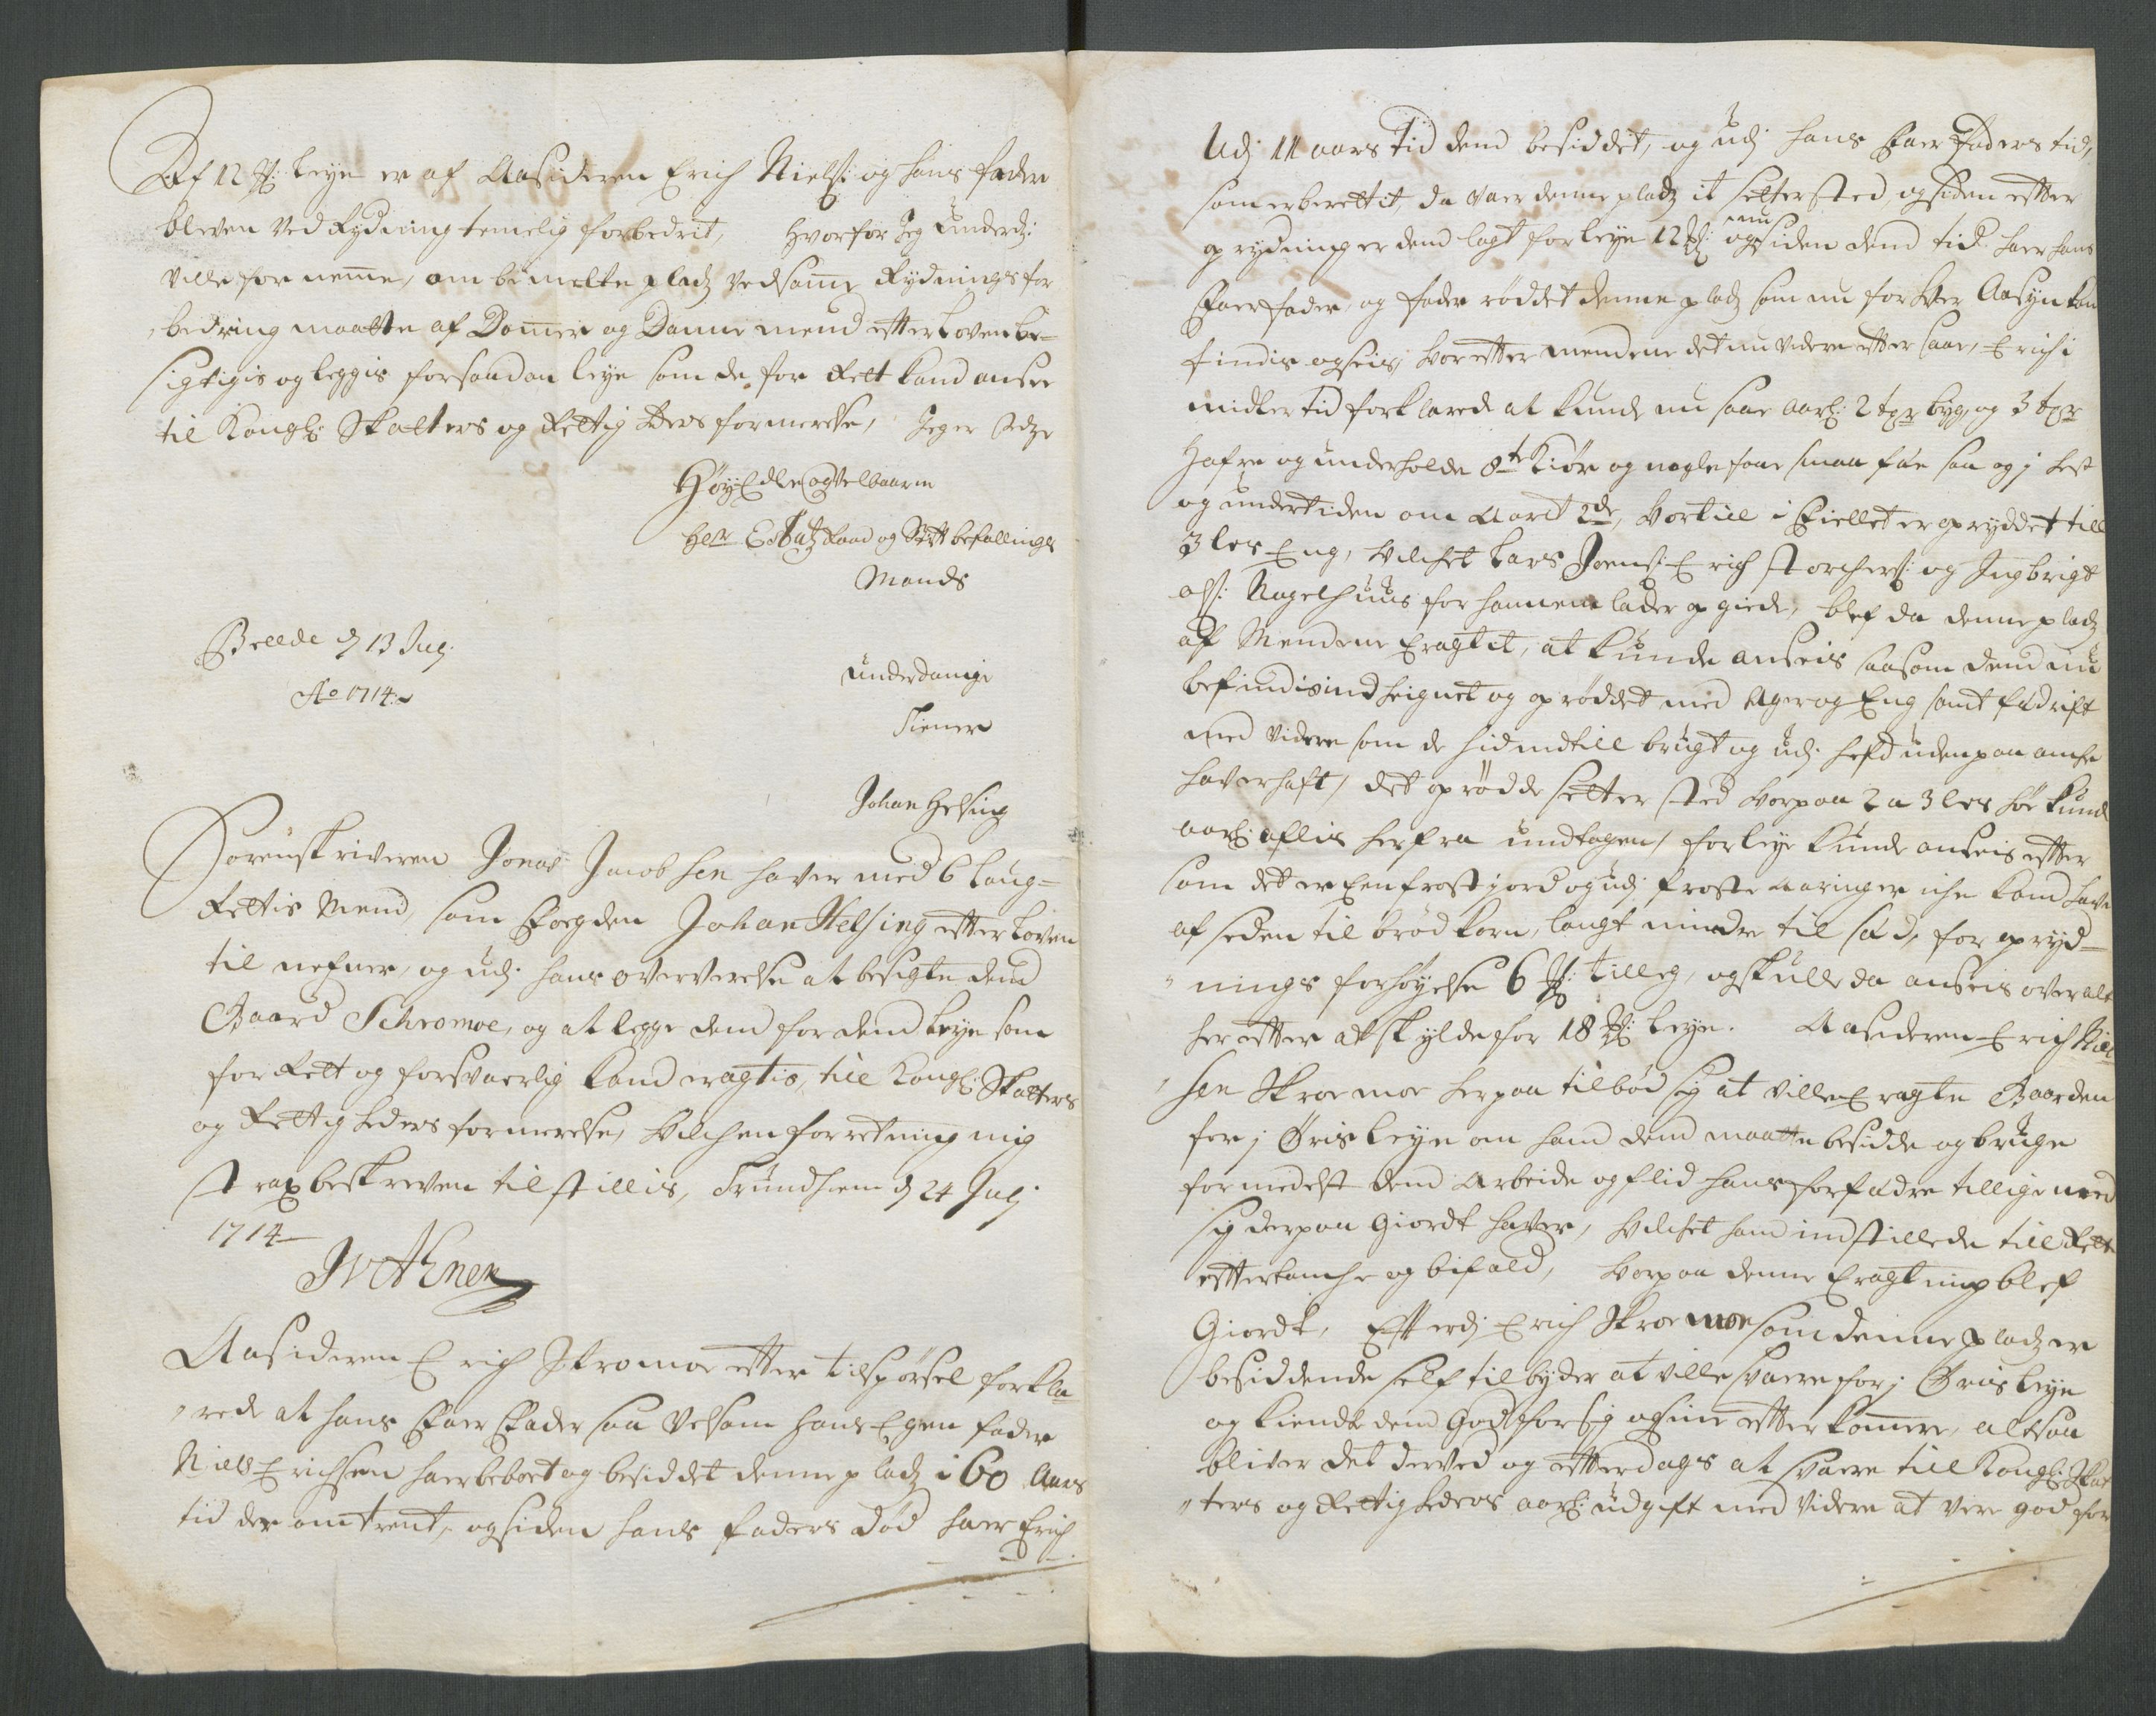 Af 12 #: Leye er af Aasideren Erich Nielß: og hans fader
bleven Ved Rydning temelig forbedrit, Hvorfor Jeg Underd:
ville fornemme, om bemelte pladz Ved samme Rydnings for
bedring maatte af Dommer og Danne mend efter Loven be-
sigtigis og leggis for saadan leye som de for Rett kand ansee
til Kongl: Skatters og Rettigheders formerelse, Jeg er
Høy Edle og Velbaarne
Herr Etatz Raad og Stift befallings
Mands
d 13 Julj
Ao 1714
underdanige
Tiener
Johan Helsing
Sorenskriveren Jonas Jacobsen haver med 6 Laug-
Rettis Mend, som Fogden Johan Helsing efter Loven
til nefner, og udj hans oververelse at besigte dend
Gaard Schromoe, og at legge dend for dend leye som
for Rett og forsvaerlig kand eragtis, till Kongl: Skatters
og Rettigheders formerelse, hvilchen forretning mig
strax beskreven tilstillis, Trundhiem d 24 Julj
1714
Aasideren Erich Skromoe efter tilspørsel forkla-
rede at hans Faer Fader saa Velsom hans Egen fader
Niels Erichsen haer beboet og besiddet denne pladz i 60 Aars
tid der omtrent, og siden hans faders død haer Erich
Udj 11 aars tid dend besiddet, og udj hans Faer Faders tid,
som er berettit, da vaer denne pladz it setter sted, og siden efter
oprydning er dend lagt for leye 12 #: og siden dend tid haer hans
Faerfader, og fader røddet denne pladz som nu for hver Aasyn kan
findis og seis, hvor efter mendene det nu videre efter saae, Erich i
midler tid forklarede at kunde nu saae aarl: 2 tpr byg, og 3 tpr
Hafre og underholde 8te Kiør og nogle faae smaa fæe saa og j hest
og undertiden om Aaret 2de, hvortill i Fiellet er opryddet till
3 les Eng, hvilchet Lars Joenß: Erich Storchersß: og Ingbrigt
olß: Nagelhuus for hannem lader op giede, blef da denne pladz
af Mendene Eragtet, at kunde anseis saasom dend nu
befindis indheignet og oprøddet med Ager og Eng samt fædrift
med videre som de hid indtill brugt og udj hefd uden paa anche
haver haft, det oprødde setter sted hvorpaa 2 a 3 les høe kunde
aarl: aflis herfra undtagen, for leye kunde anseis efter
som det er Een frost jord og udj froste aaringer iche kand have
af seden til brød korn, langt mindre til sæd, for opryd-
nings forhøyelse 6 #: tilleg, og skulle da anseis over alt
her efter at skylde for 18 #: leye. Aasideren Erich Niel
sen Skroemoe herpaa tilbød sig at ville Eragte Gaarden
for j Øris leye om hand dend maatte besidde og bruge
formedelst dend Arbeide og flid hans forfædre tillige med
sig derpaa Giordt haver, hvilchet hand indstillede till Rett
efter tanche og bifald, hvorpaa denne Eragtning blef
Giordt, Efterdj Erich Skroemoe som denne pladz er
besiddende self tilbyder at ville svare for j Øris leye
og kiende dend God for sig og sine efterkommere, altsaa
bliver det derved og efterdags at svare till Kongl: Skat
ters og Rettigheders aarl: udgift med videre at vere god for